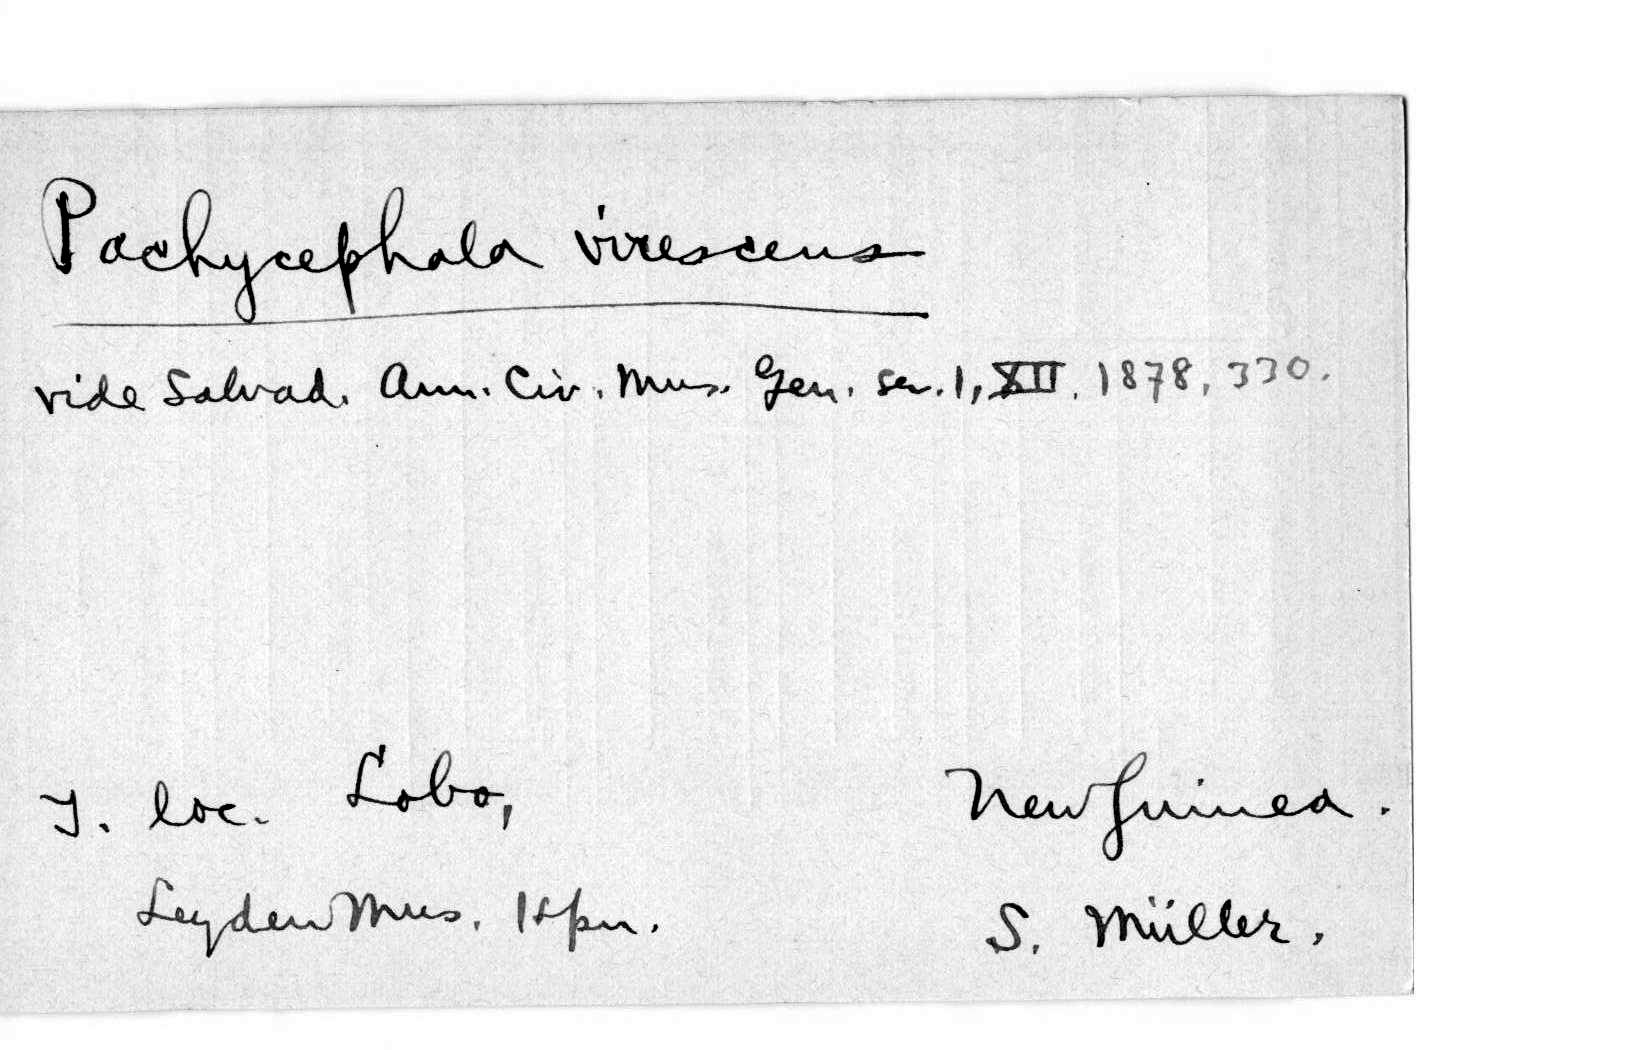 Pachycephala virescens
vide Salvad. Ann. Civ. Mus. Gen. ser. 1, XII. 1878, 330.
T. loc. Lobo, New Guinea.
Leyden Mus. 1 spn. S. Müller.